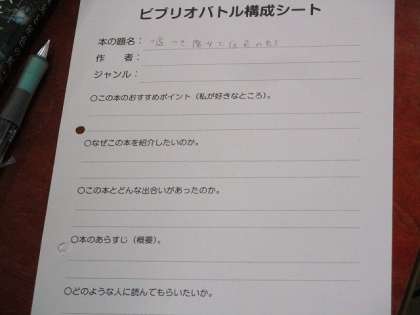 ビブリオバトル構成シート
本の題名：
作　　者：
ジャンル：
○この本のおすすめポイント（私が好きなところ）。
○なぜこの本を紹介したいのか。
○この本とどんな出合いがあったのか。
○本のあらすじ（概要）。
○どのような人に読んでもらいたいか。